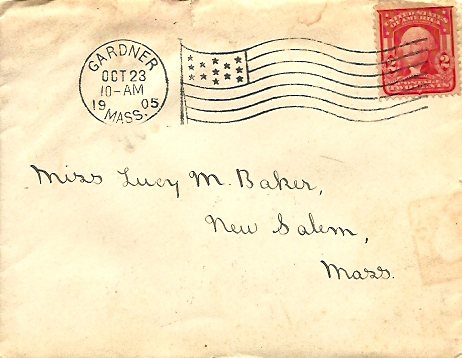 GARDNER
OCT 23
10-AM
19 05
MASS.
UNITED STATES
OF AMERICA
2 2
TWO CENTS
Miss Lucy M. Baker,
New Salem,
Mass.